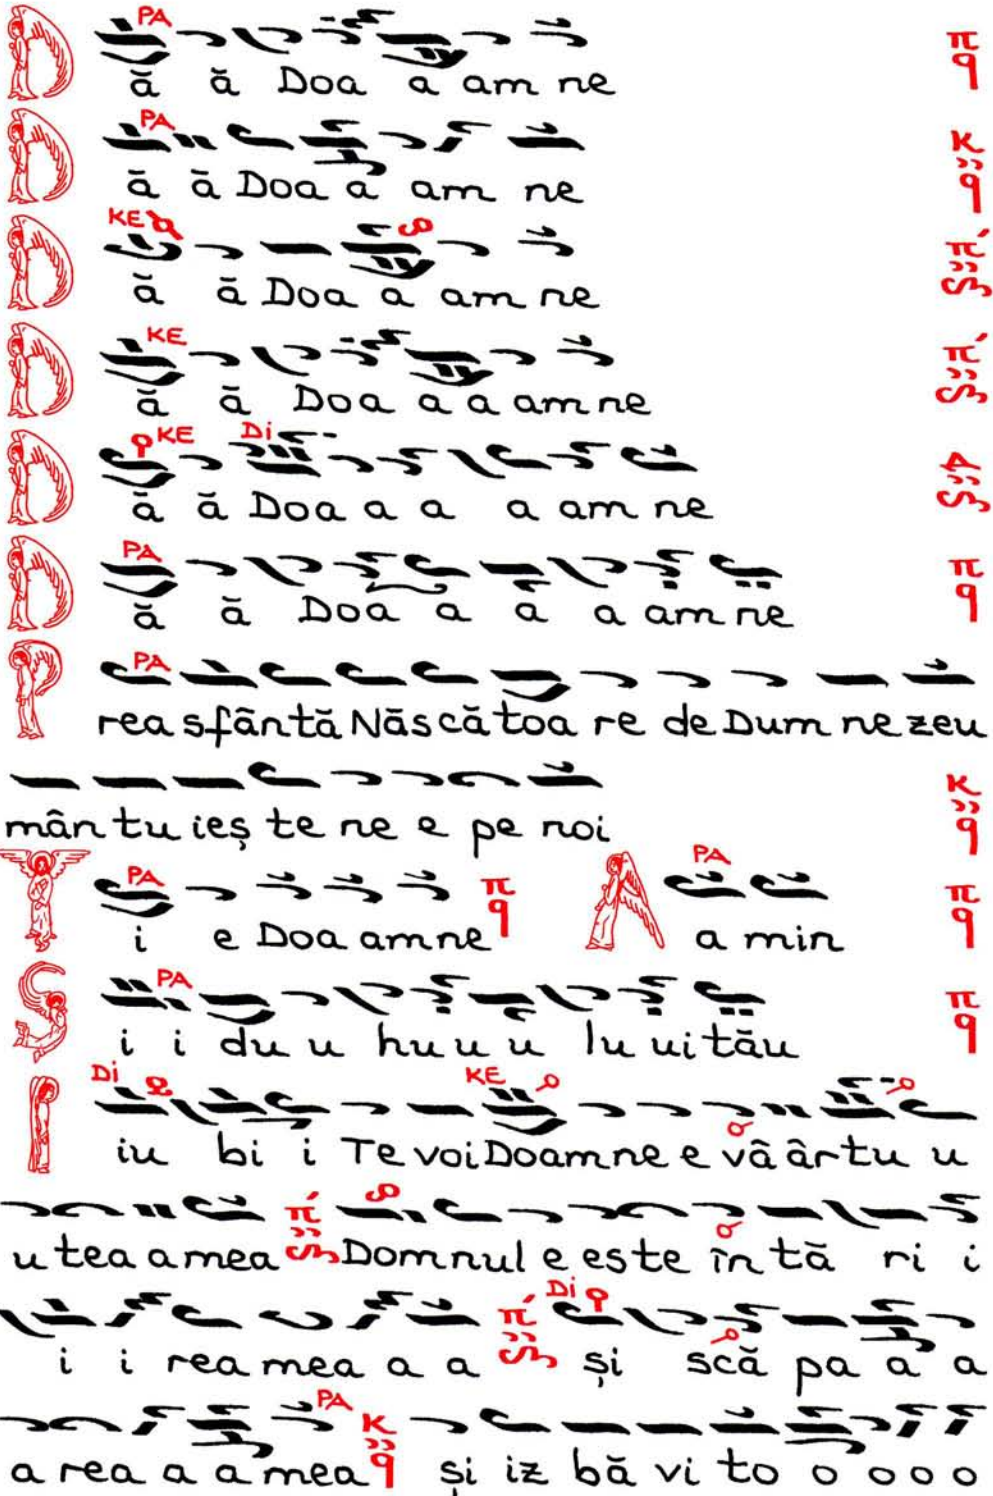 PA π q
D ă ă Doa a am ne
PA K q
D ă ă Doa a am ne
KE π
D ă ă Doa a am ne
KE π
D ă ă Doa a a am ne
KE Di Δ
D ă ă Doa a a a am ne
PA π q
D ă ă Doa a a a am ne
PA
P rea sfântă Născătoa re de Dum ne zeu
mân tu ieș te ne e pe noi K q
PA π q PA π q
T i e Doa amne A a min
PA π q
S i i du u hu u u lu ui tău
Di KE
I iu bi i Te voi Doamne e vâ âr tu u
u tea a mea π Domnul e este în tă ri i
Di
i i rea mea a a π și scă pa a a
PA
a rea a a mea K q și iz bă vi to o o o o